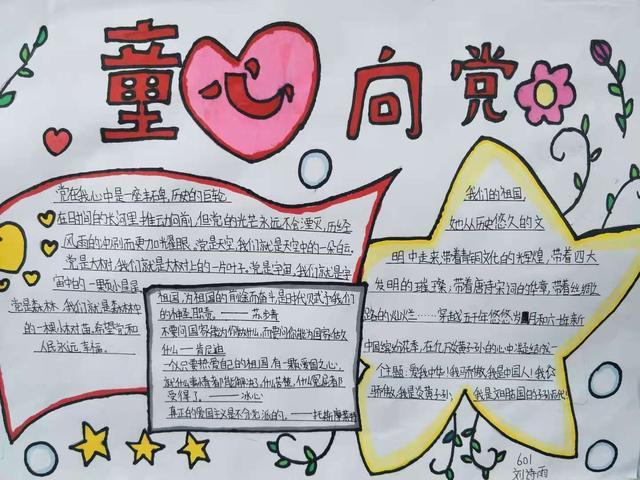 童心向党
党在我心中是一座丰碑,历史的巨轮
在时间的长河里推动向前,但党的光芒永远不会湮灭,历经
风雨的冲刷而更加光辉耀眼。党是天空,我们就是天空中的一朵白云。
党是大树,我们就是大树上的一片叶子。党是宇宙,我们就是宇
宙中的一里
党是森林,我们就是森林中
的一棵小树苗。希望党和
人民永远幸福。
祖国,为祖国的前途而奋斗是时代赋予我们
的神圣职责。——苏步青
不要问国家能为你做什么,而要问你能为国家做
什么——肯尼迪
一个人只要热爱自己的祖国,有一颗爱国之心,
就什么事情都能解决,什么苦楚,什么冤屈都
受得了。——冰心
真正的爱国主义是不分党派的。——托斯摩莱特
我们的祖国,
她从历史悠久的文
明中走来,带着青铜文化的光辉煌,带着四大
发明的璀璨,带着唐诗宋词的华章,带着丝绸
路的灿烂……穿越五千年悠悠岁月和六
中国缤纷花季,在九万炎黄子孙的心中凝结成一
个主题:爱我中华!我骄傲,我是中国人!我
骄傲,我是炎黄子孙!我是
601
刘诗雨